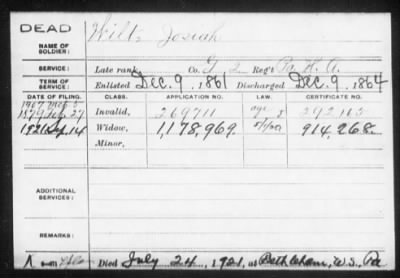 DEAD
NAME OF SOLDIER: Wilt, Josiah
SERVICE: Late rank, Co. G, 2 Reg't Pa. H. A.
TERM OF SERVICE: Enlisted Dec. 9, 1861 Discharged Dec. 9, 1864
DATE OF FILING. CLASS. APPLICATION NO. LAW. CERTIFICATE NO.
1907
1879 Feb. 27 Invalid, 269711 292,165
1921 Sep. 14 Widow, 1,178,969. 914,268.
Minor,
ADDITIONAL SERVICES:
REMARKS:
Died July 24, 1921, at Bethlehem, W.S., Pa